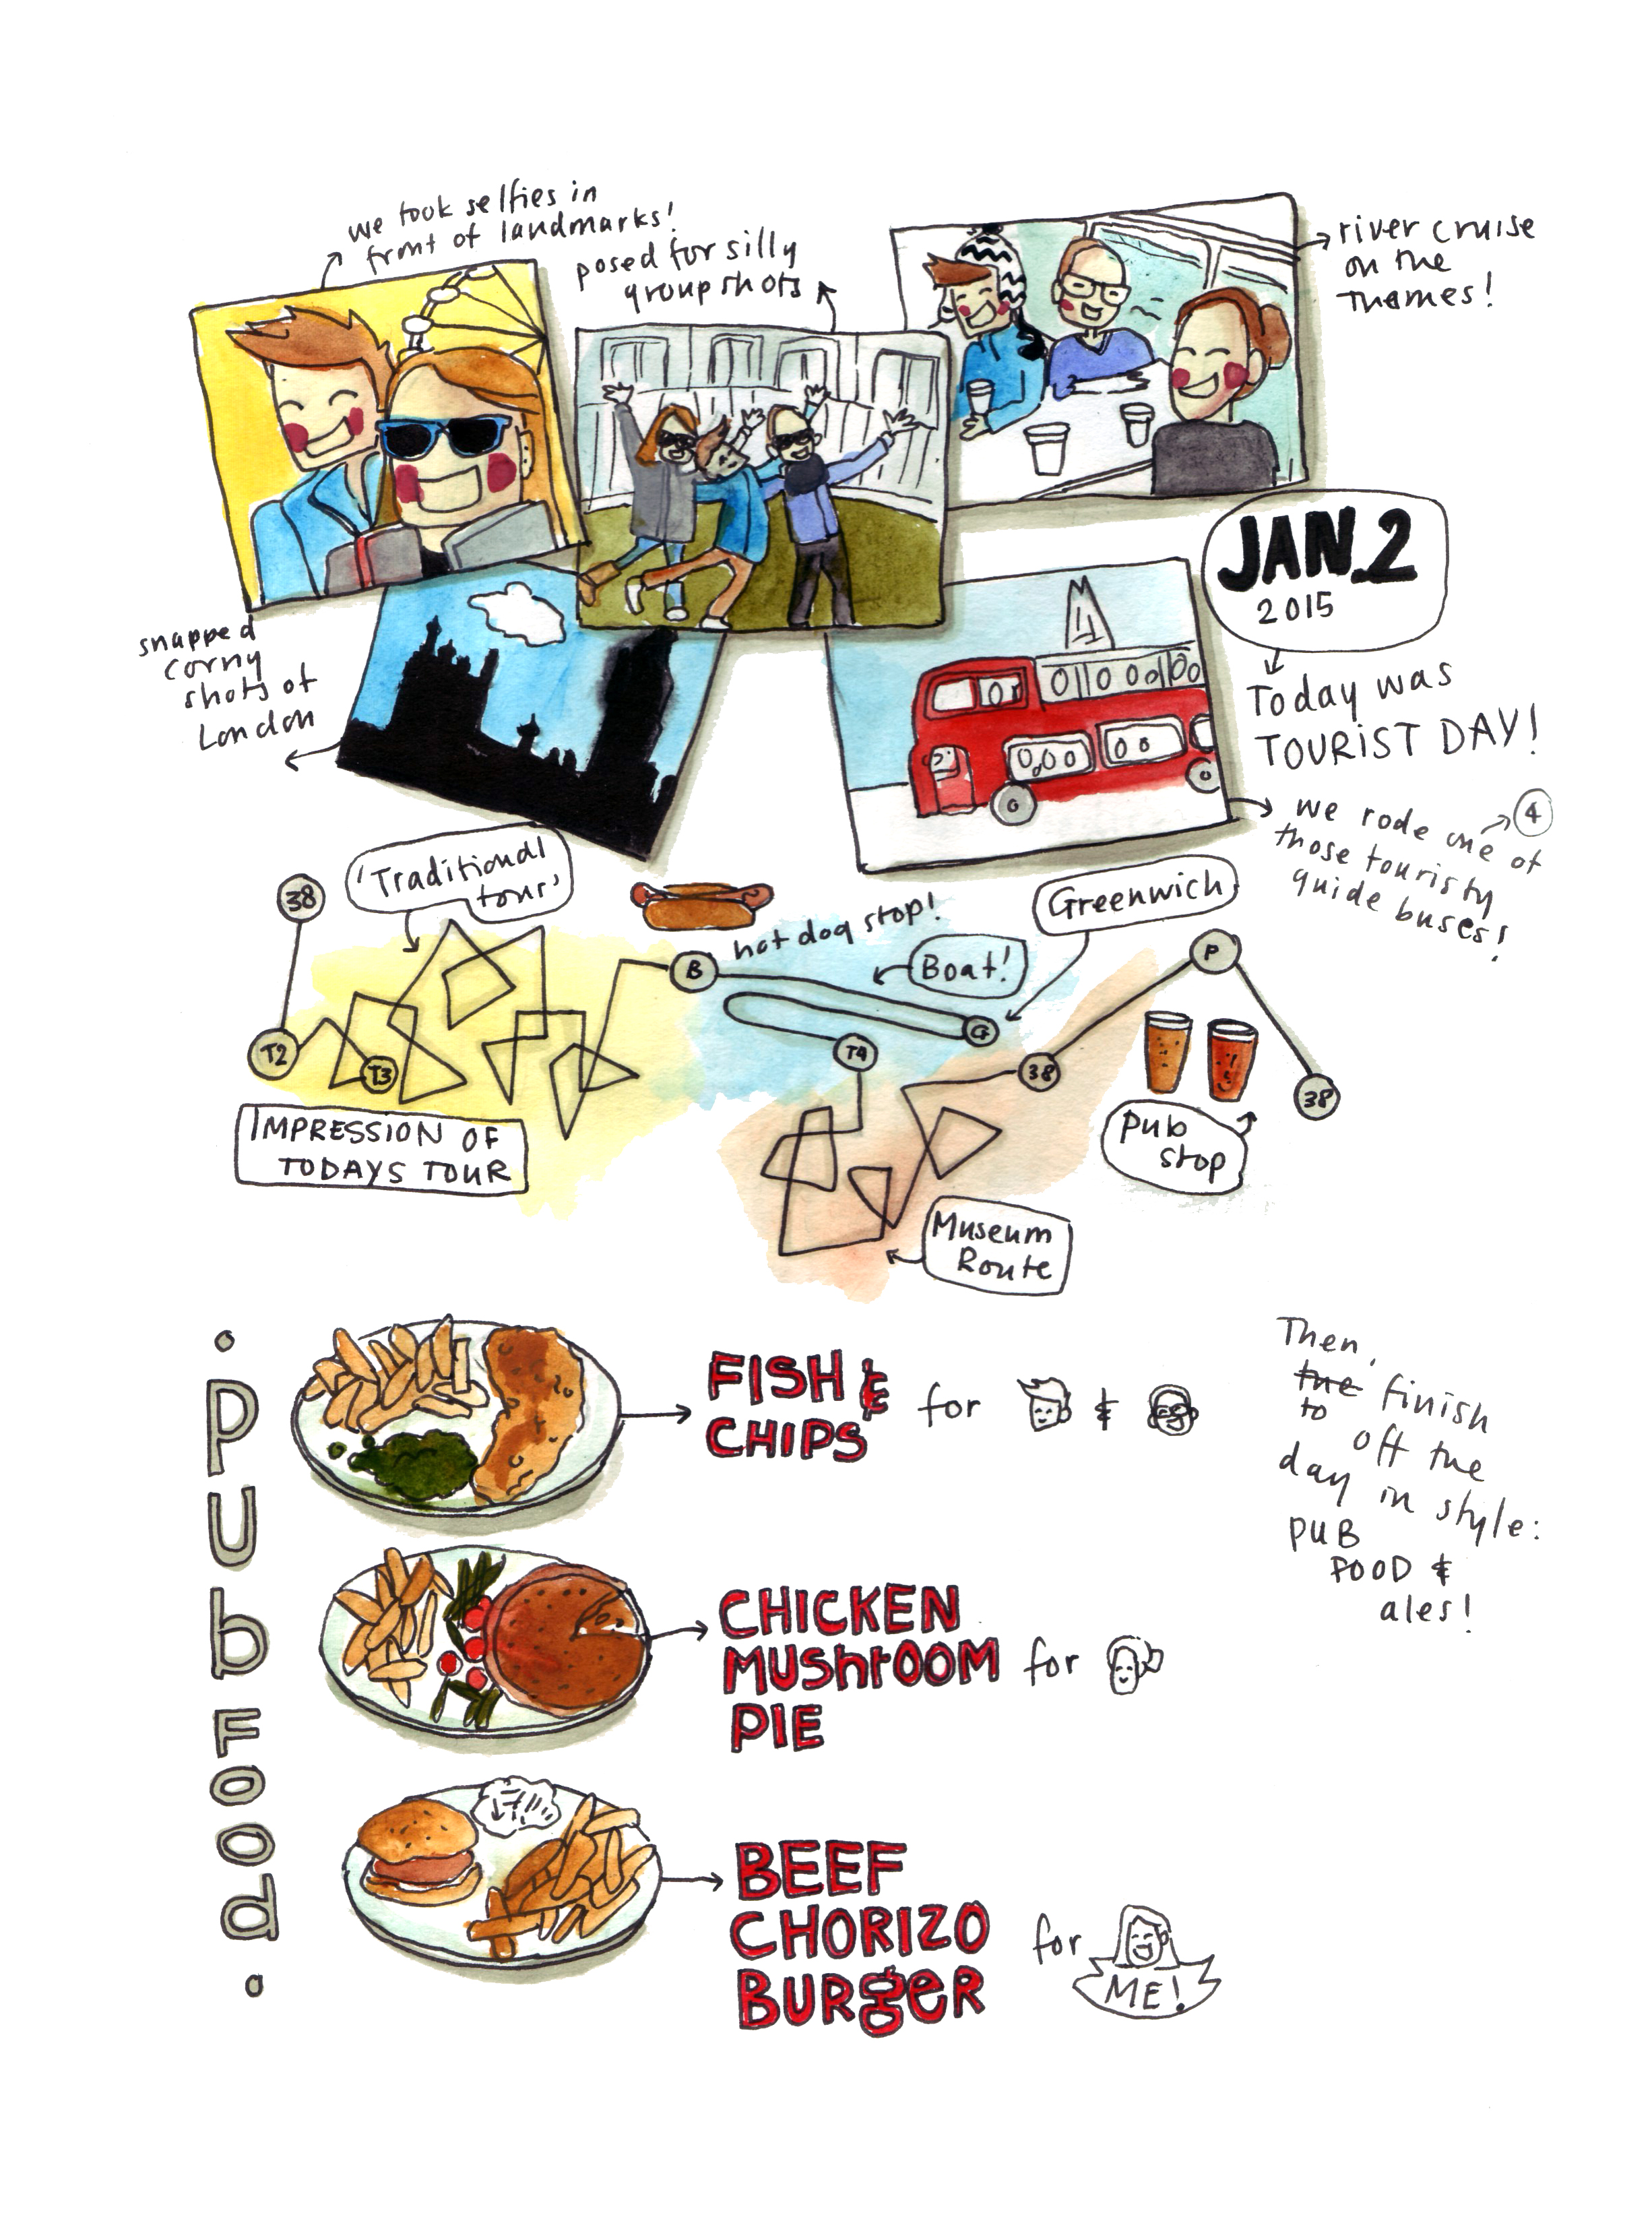 we took selfies in
front of landmarks!
posed for silly
group shots
river cruise
on the
Thames!
JAN.2
2015
Today was
TOURIST DAY!
snapped
corny
shots of
London
we rode one of
4
those touristy
guide buses!
'Traditional
tour'
hot dog stop!
Boat!
Greenwich
38
T2
T3
B
G
T4
38
P
38
IMPRESSION OF
TODAYS TOUR
Pub
stop
Museum
Route
• Pub Food •
FISH &
CHIPS
for
&
CHICKEN
MUShrOOM
PIE
for
BEEF
CHORIZO
BURgeR
for
ME!
Then,
the finish
to
off the
day in style:
PUB
FOOD &
ales!